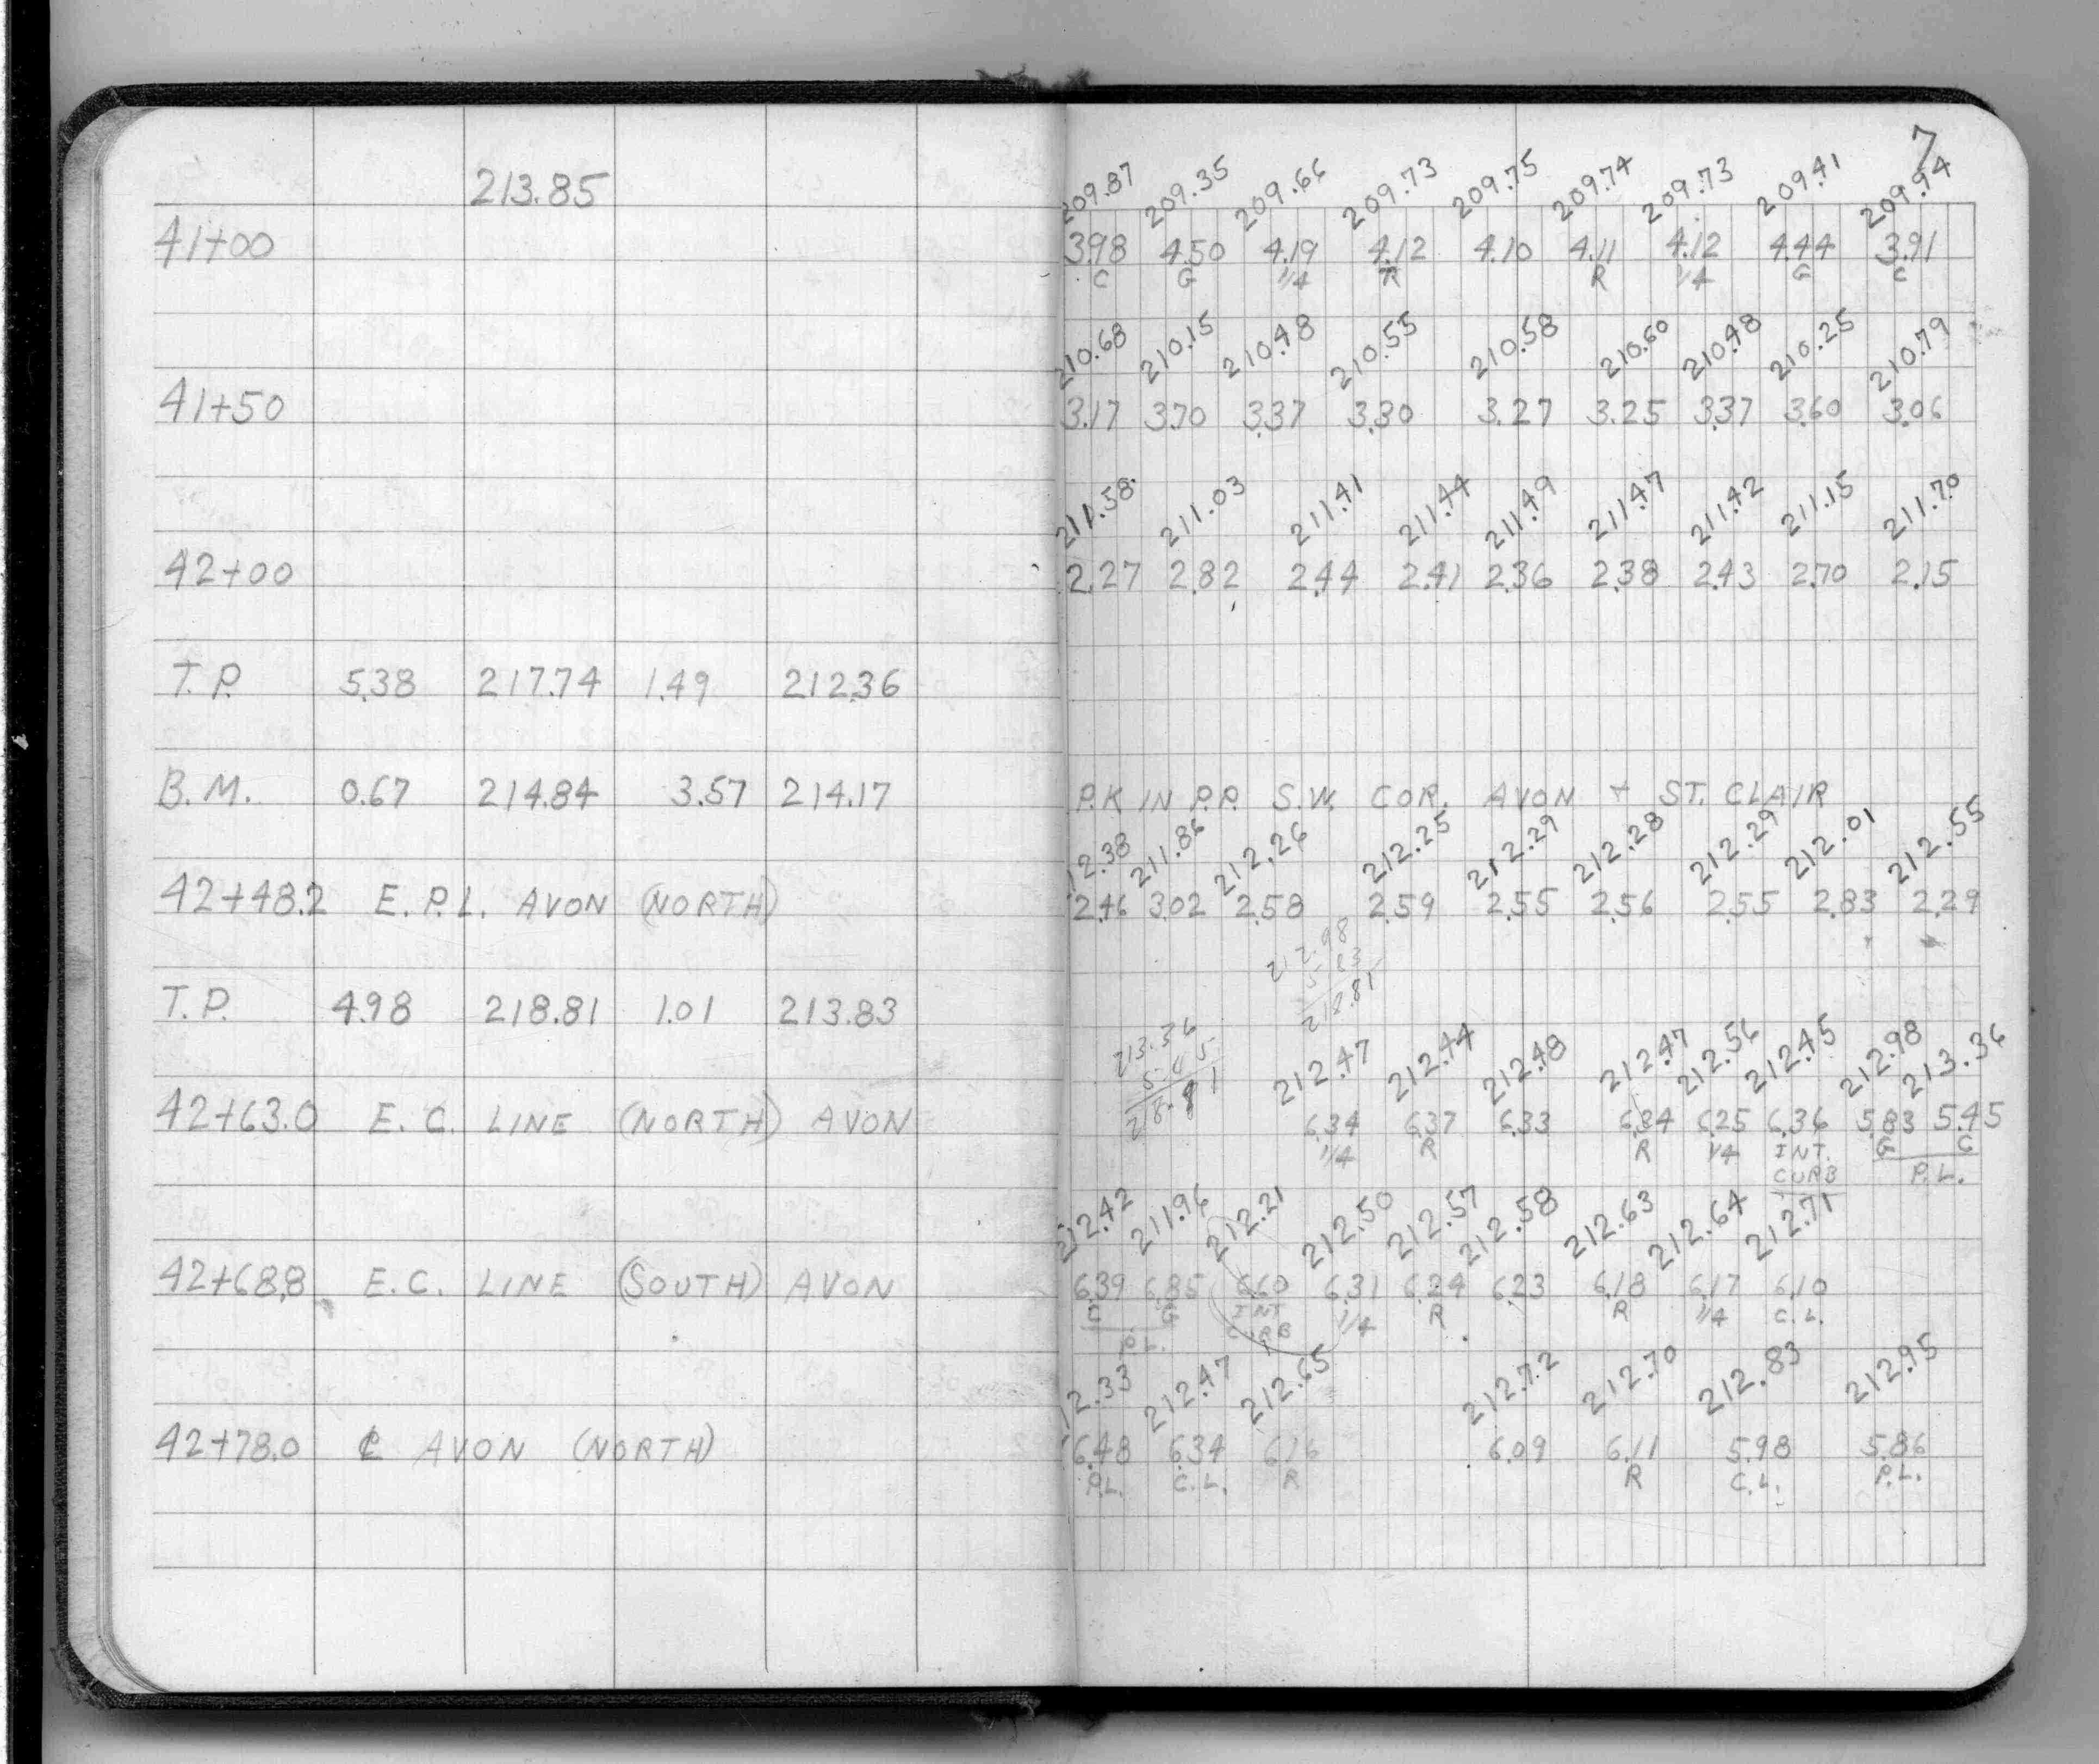 7
213.85
209.87 209.35 209.66 209.73 209.75 209.74 209.73 209.41 209.94
41+00 3.98 4.50 4.19 4.12 4.10 4.11 4.12 4.44 3.91
C G 1/4 R R 1/4 G C
210.68 210.15 210.48 210.55 210.58 210.60 210.48 210.25 210.79
41+50 3.17 3.70 3.37 3.30 3.27 3.25 3.37 3.60 3.06
211.58 211.03 211.41 211.44 211.49 211.47 211.42 211.15 211.70
42+00 2.27 2.82 2.44 2.41 2.36 2.38 2.43 2.70 2.15
T.P. 5.38 217.74 1.49 212.36
B.M. 0.67 214.84 3.57 214.17 P.K IN P.P. S.W. COR. AVON + ST. CLAIR
12.38 211.86 212.26 212.25 212.29 212.28 212.29 212.01 212.55
42+48.2 E.P.L. AVON (NORTH) 2.46 3.02 2.58 2.59 2.55 2.56 2.55 2.83 2.29
212.98
5.83
218.81
T.P. 4.98 218.81 1.01 213.83
213.36
5.45
218.81
212.47 212.44 212.48 212.47 212.56 212.45 212.98 213.36
42+63.0 E.C. LINE (NORTH) AVON 6.34 6.37 6.33 6.34 6.25 6.36 5.83 5.45
1/4 R R 1/4 INT. G C
CURB P.L.
212.42 211.96 212.21 212.50 212.57 212.58 212.63 212.64 212.71
42+68.8 E.C. LINE (SOUTH) AVON 6.39 6.85 6.60 6.31 6.24 6.23 6.18 6.17 6.10
C G INT 1/4 R R 1/4 C.L.
P.L. CURB
12.33 212.47 212.65 212.72 212.70 212.83 212.95
42+78.0 ℄ AVON (NORTH) 6.48 6.34 6.16 6.09 6.11 5.98 5.86
P.L. C.L. R R C.L. P.L.